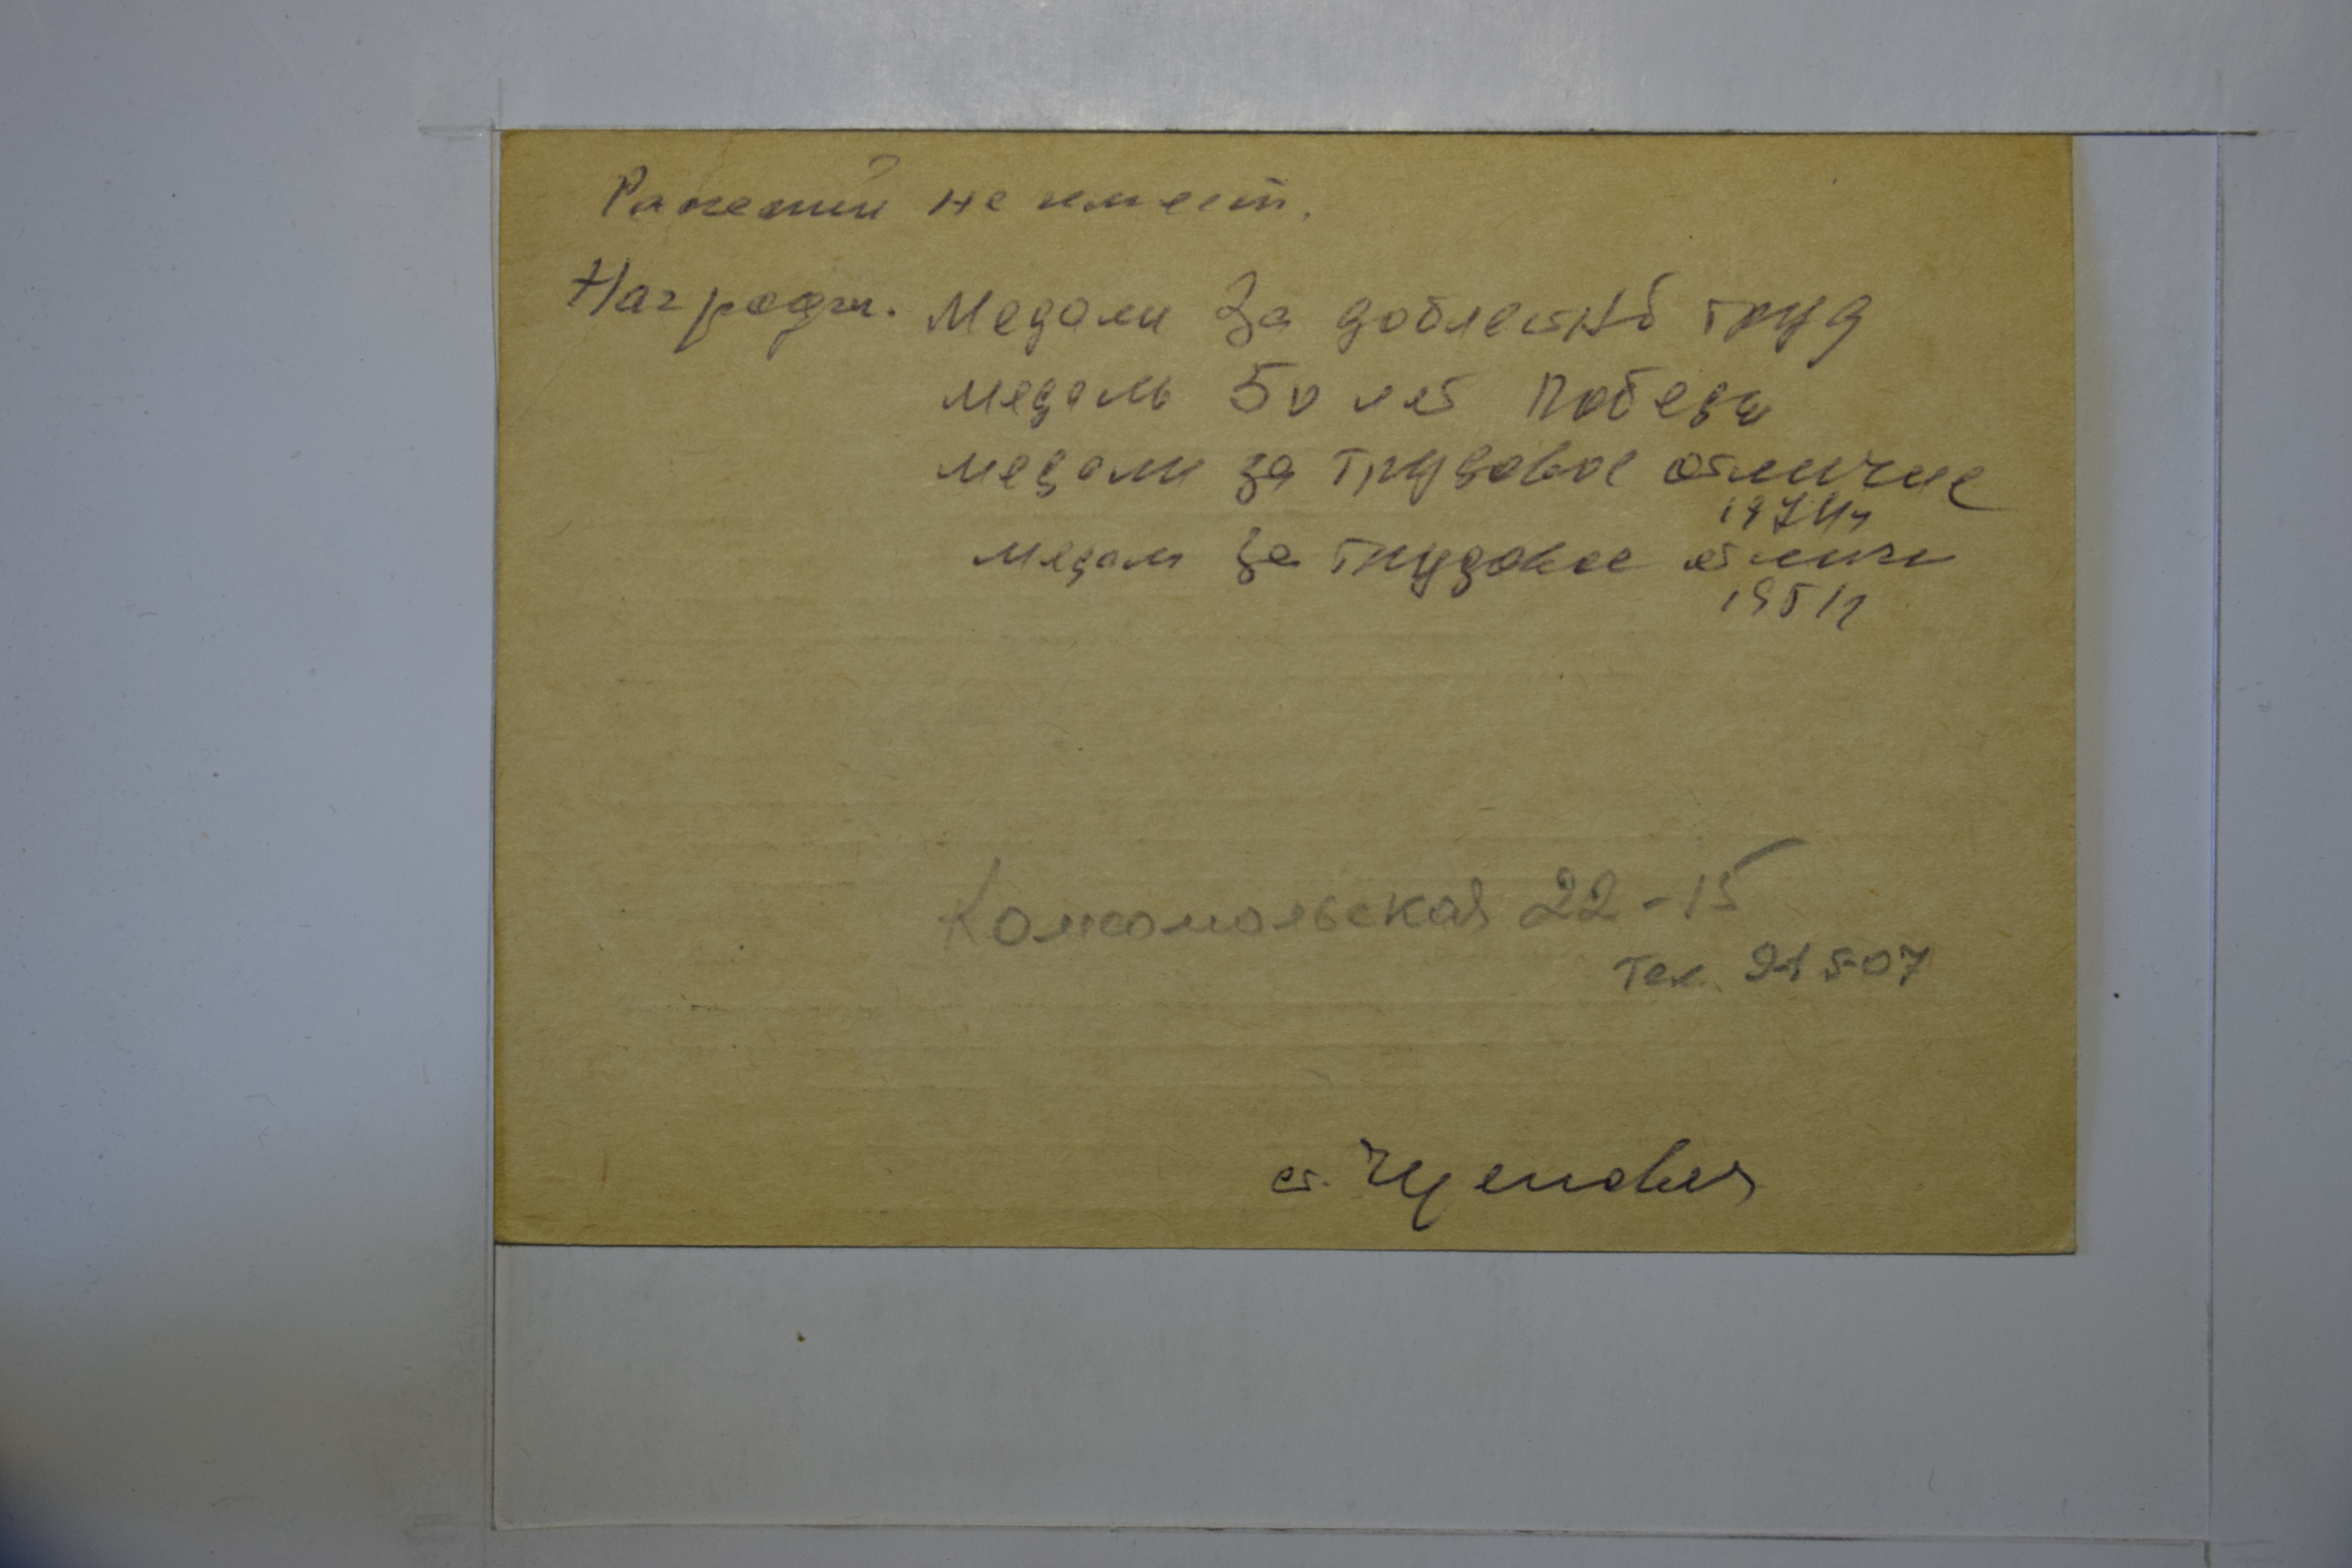 Ранений не имеет.
Награды. Медали За доблестнб труд
медаль 50 лет Победы
медали за трудовое отличие
1974г
медали за трудовое отличи
1951г
Комсомольская 22-15
тел. 21507